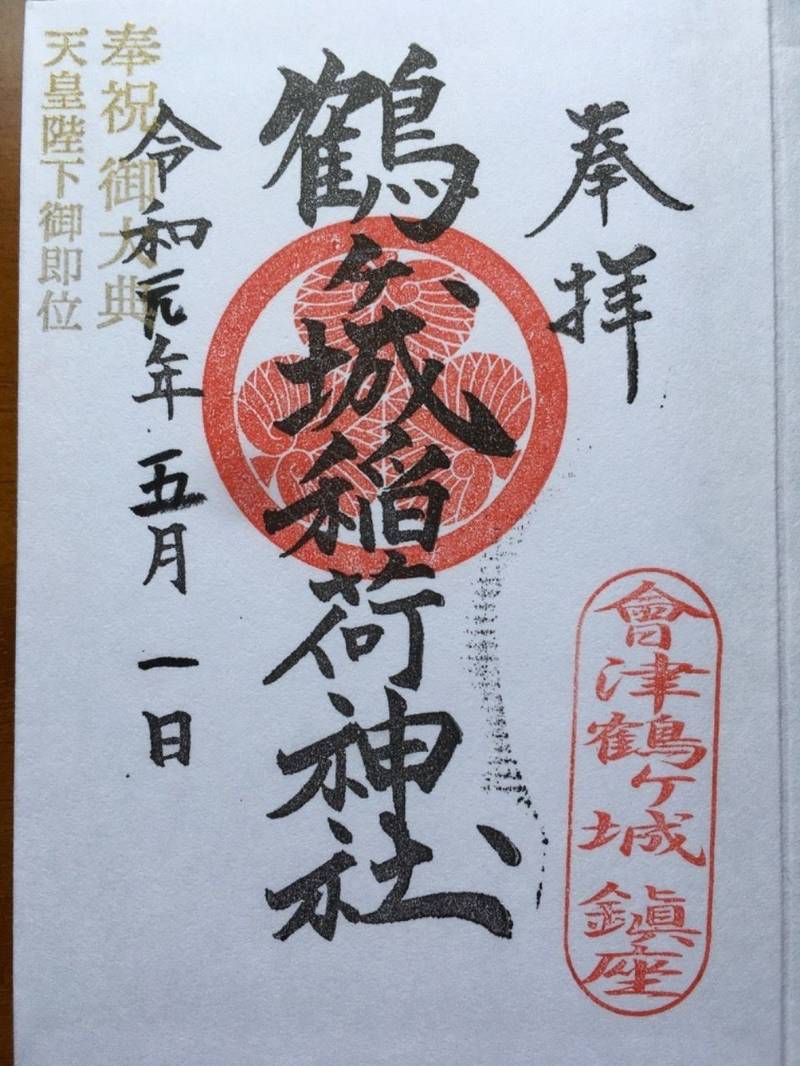 奉拝
會津鶴ケ城鎮座
鶴ヶ城稲荷神社
令和元年五月一日
奉祝御大典
天皇陛下御即位